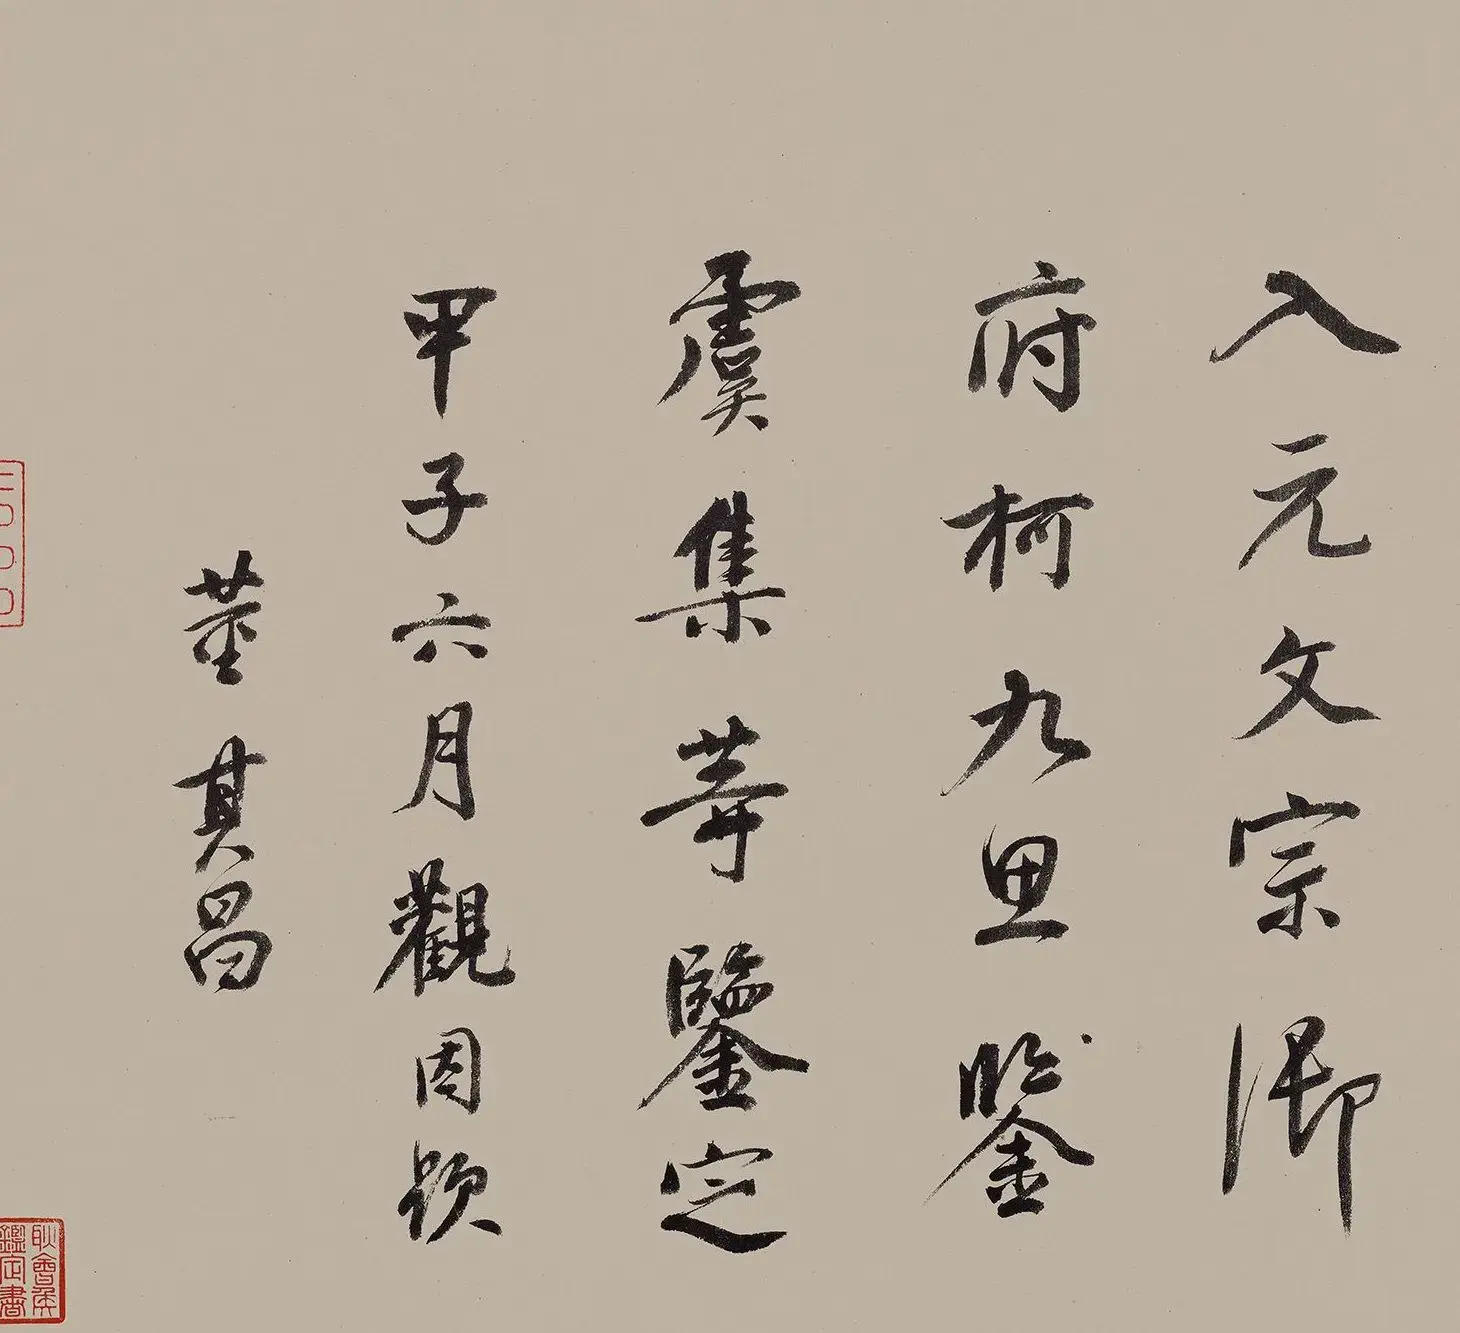 入元文宗御
府柯九思鑒
虞集等鑒定
甲子六月觀因題
董其昌
耿會侯
鑑定書